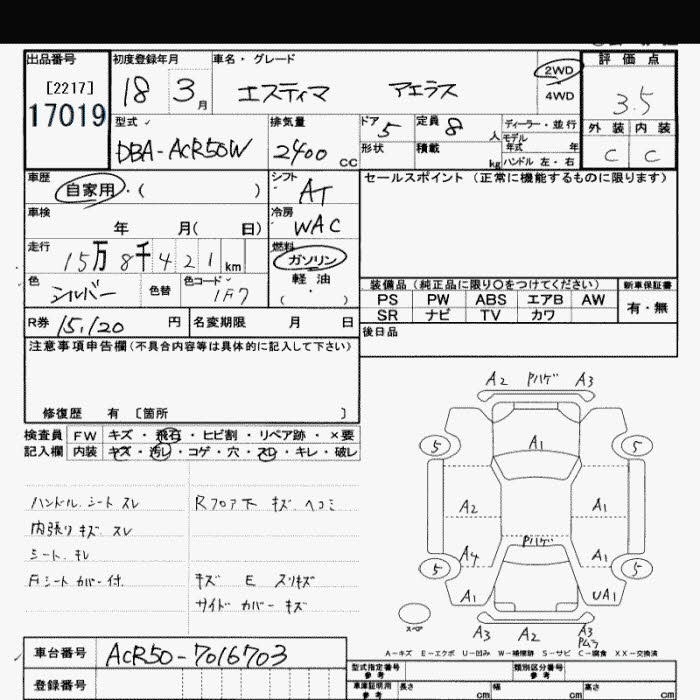 出品番号 初度登録年月 車名・グレード 評価点
[2217]
17019
18 3月 エスティマ アエラス 2WD 4WD 3.5
型式 排気量 ドア 定員 ディーラー・並行 外装 内装
DBA-ACR50W 2400cc 5 8人 モデル年式 年 C C
形状 積載 kg ハンドル 左・右
車歴 自家用・( ) シフト AT セールスポイント (正常に機能するものに限ります)
車検 年 月( 日) 冷房 WAC
走行 15万8千421km 燃料 ガソリン 軽油 ( ・ )
色 シルバー 色替 色コード 1F7
装備品(純正品に限り○をつけてください) 新車保証書
PS PW ABS エアB AW 有・無
SR ナビ TV カワ
R券 15,120円 名変期限 月 日 後日品
注意事項申告欄(不具合内容等は具体的に記入して下さい)
修復歴 有 〔箇所 〕
検査員 FW キズ・飛石・ヒビ割・リペア跡・×要
記入欄 内装 キズ・汚レ・コゲ・穴・スレ・キレ・破レ
ハンドル.シート スレ Rフロア下 キズ ヘコミ
内張り キズ.スレ
シート.キレ
Fシート カバー付 キズ E スリキズ
サイド カバー キズ
A2 Pハゲ A3
5 A1 5
A2 A1
Pハゲ
A4 A1
5 5
A1 UA1
スペア
A3 A2 A3
A-キズ E-エクボ U-凹み W-補修跡 S-サビ C-腐食 XX-交換済
車台番号 ACR50-7016703
登録番号
型式指定番号 参考 類別区分番号 参考
車庫証明用 参考 長さ cm 幅 cm 高さ cm